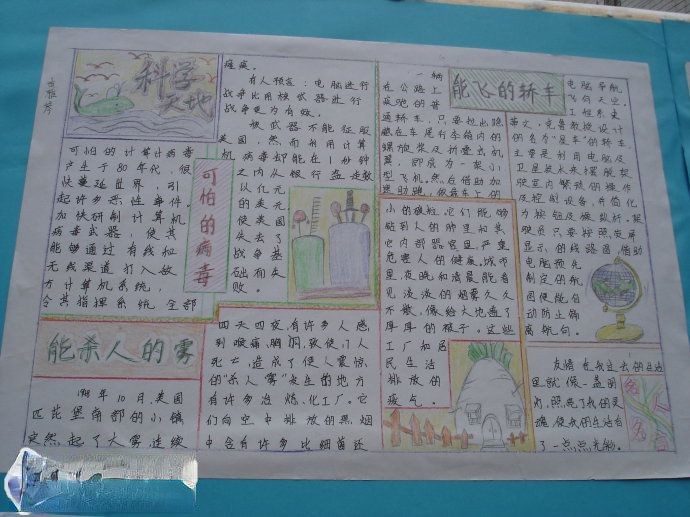 科学
天地
可怕的计算计病毒
产生于80年代,很
快蔓延世界,引
起许多恶性事件。
加快研制计算机
病毒武器,使其
能够通过有线和
无线渠道打入敌
方计算机系统,
令其指挥系统全部
瘫痪。
有人预言:电脑进行
战争比用核武器进行
战争更为有效。
核武器不能征服
美国,然而利用计算
机病毒却能在1秒钟
之内从银行盗走数
以亿元
的美元
使美国
失去了
战争基
础而失
败。
可怕的病毒
能杀人的雾
1948年10月,美国
匹兹堡南部的小镇
突然起了大雾连续
四天四夜,有许多人感
到喉痛、胸闷,致使门人
死亡,造成了使人震惊
的“杀人雾”发生的地方
有许多冶炼、化工厂。它
们向空中排放的黑烟
中含有许多比细菌还
小的微粒。它们能够
钻到人的肺里和其
它内部器官里,严重
危害人的健康。城市
里,夜晚和清晨能看
见淡淡的烟雾久久
不散,像给大地通了
厚厚的被子。这些
工厂和居
民生活
排放的
废气。
能飞的轿车
一辆
在公路上
疾驰的普
通轿车,只要拉出隐
藏在车尾行李箱内的
螺旋桨及折叠式机
翼,即成为一架小
型飞机。然后借助加
速助跑,
电脑导航
飞向天空。
工程系史
弗文,克鲁教授设计
的名今“星车”的轿车,
主要是利用电脑及
卫星放大来摆脱驾
驶室内繁琐的操作
及控制设备,并简化
为按钮及操纵杆。驾
驶员只要按照荧屏
显示的线路图,借助
电脑预先
制定的航
图便能自
动防止偏
离航向。
友情在我过去的生活
里就像一盏明
灯,照亮了我的灵
魂,使我的生活有
了一点点光彩。
名人
名言